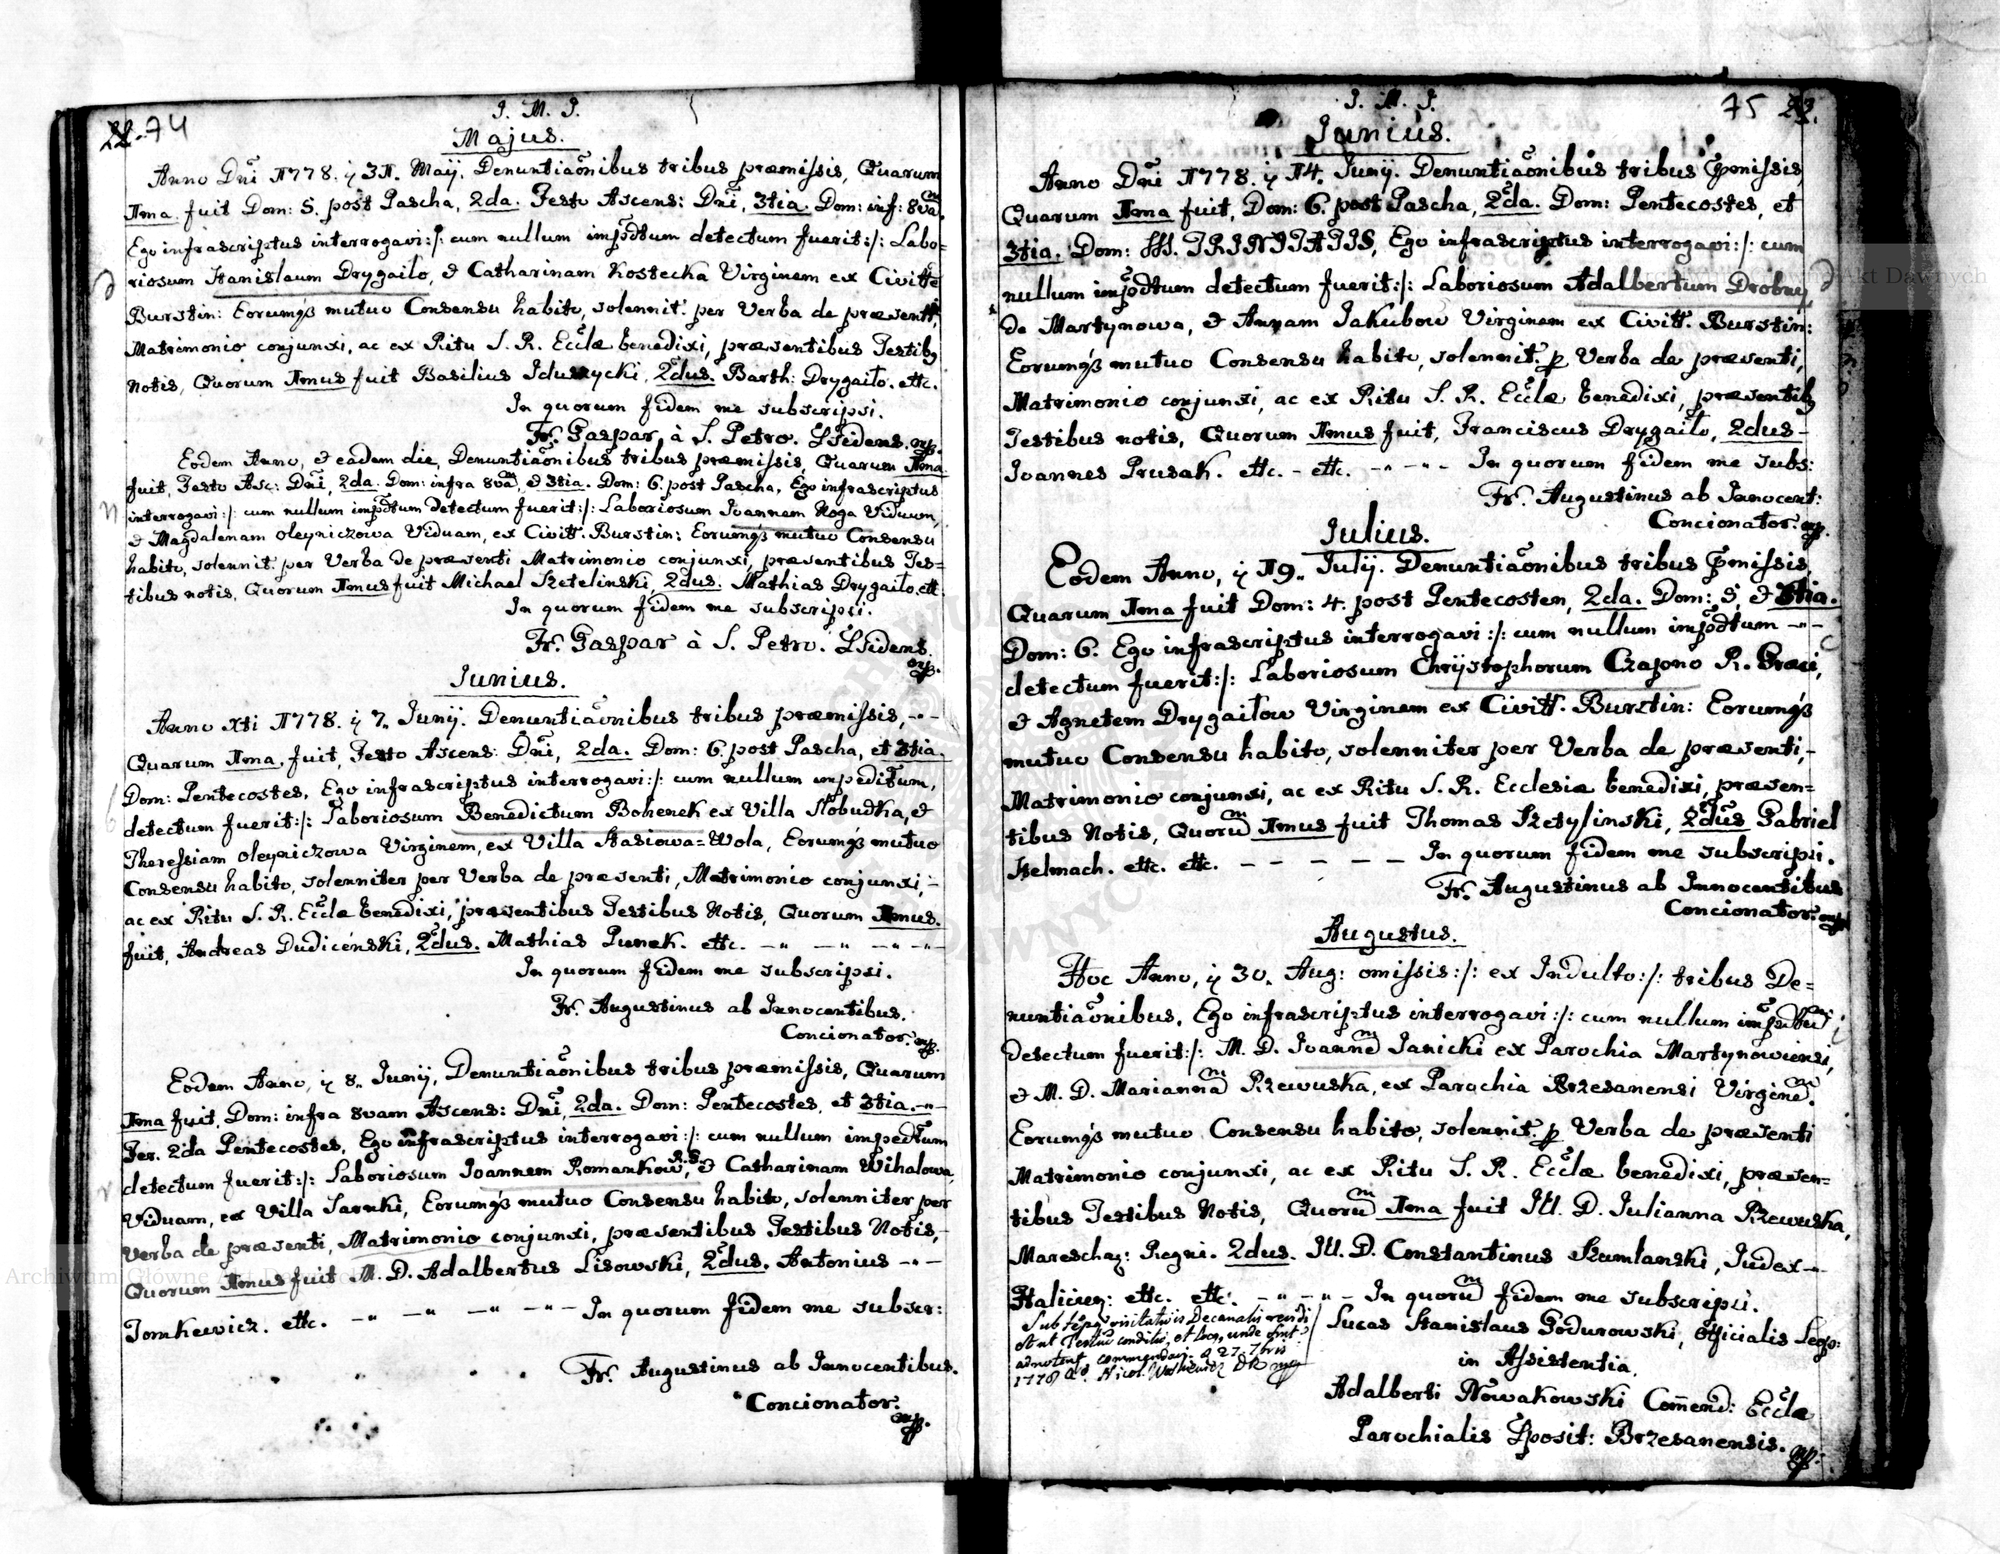 22. 74
J. M. J.
Majus.
Anno Dni 1778. ÿ 31. Maij. Denuntiaõnibus tribus præmissis, Quarum
1ma fuit Dom: 5. post Pascha, 2da. Festo Ascens: Dni, 3tia. Dom: inf: 8vam.
Ego infrascriptus interrogavi :/: cum nullum impdtum detectum fuerit :/: Labo=
riosum Stanislaum Drygaiło, & Catharinam Kostecka Virginem ex Civitte
Burstin: Eorumq3 mutuo Consensu habito, solennit: per Verba de præsenti,
Matrimonio conjunxi, ac ex Ritu S. R. Ecclæ benedixi, præsentibus Testib9
notis, Quorum 1mus fuit Basilius Iduszycki, 2dus. Barth: Drygaiło. ettc.
In quorum fidem me subscripsi.
Fr. Gaspar à S. Petro. PSidens. mp.
Eodem Anno, & eadem die, Denuntiaõnibus tribus præmissis, Quarum 1ma
fuit, Festo Asc: Dni, 2da. Dom: infra 8vã, & 3tia. Dom: 6. post Pascha, Ego infrascriptus
interrogavi :/: cum nullum impdtum detectum fuerit :/: Laboriosum Ioannem Roga Viduum,
& Magdalenam Oleyniczowa Viduam, ex Civitt. Burstin: Eorumq3 mutuo Consensu
habito, solennit: per Verba de præsenti Matrimonio conjunxi, præsentibus Tes=
tibus notis, Quorum 1mus fuit Michael Szetelinski, 2dus. Mathias Drygaiło. ett.
In quorum fidem me subscripsi.
Fr. Gaspar à S. Petro. PSidens.
mp.
Iunius.
Anno Xti 1778. ÿ 7. Junij. Denuntiaõnibus tribus præmissis, -"-
Quarum 1ma. fuit, Festo Ascens: Dni, 2da. Dom: 6. post Pascha, et 3tia.
Dom: Pentecostes, Ego infrascriptus interrogavi :/: cum nullum impeditum,
detectum fuerit :/: Laboriosum Benedictum Bohenek ex Villa Słobudka, &
Theressiam Oleyniczowa Virginem, ex Villa Stasiowa=Wola, Eorumq3 mutuo
Consensu habito, solenniter per Verba de præsenti, Matrimonio conjunxi, -
ac ex Ritu S. R. Ecclæ benedixi, præsentibus Testibus Notis, Quorum 1mus.
fuit, Andreas Dudicénski, 2dus. Mathias Punek. ettc. -" -" -" -"-
In quorum fidem me subscripsi.
Fr. Augustinus ab Innocentibus.
Concionator. mp.
Eodem Anno, ÿ 8. Junij, Denuntiaõnibus tribus præmissis, Quarum
1ma fuit, Dom: infra 8vam Ascens: Dni, 2da. Dom: Pentecostes, et 3tia. -"-
Fer. 2da Pentecostes, Ego infrascriptus interrogavi :/: cum nullum impedtum
detectum fuerit :/: Laboriosum Ioannem Romankow, R.G. & Catharinam Wihalowa,
Viduam, ex Villa Sarnki, Eorumq3 mutuo Consensu habito, solenniter per
Verba de præsenti, Matrimonio conjunxi, præsentibus Testibus Notis, -
Quorum 1mus fuit M. D. Adalbertus Lisowski, 2dus. Antonius -"-
Tomkewicz. ettc. -" -" -" -"- In quorum fidem me subscr:
Fr. Augustinus ab Innocentibus.
Concionator.
mp.
J. M. J.
75 23.
Junius.
Anno Dni 1778. ÿ 14. Junij. Denuntiaõnibus tribus Pmissis,
Quarum 1ma fuit, Dom: 6. post Pascha, 2da. Dom: Pentecostes, et
3tia. Dom: SSS. TRINITATIS, Ego infrascriptus interrogavi :/: cum
nullum impdtum detectum fuerit :/: Laboriosum Adalbertum Drobny
de Martynowa, & Annam Jakubow Virginem ex Civitt. Burstin:
Eorumq3 mutuo Consensu habito, solennit: p Verba de præsenti,
Matrimonio conjunxi, ac ex Ritu S. R. Ecclæ benedixi, præsentib9
Testibus notis, Quorum 1mus fuit, Franciscus Drygaiło, 2dus -
Ioannes Prusak. ettc. - ettc. -"-"- In quorum fidem me subs:
Fr. Augustinus ab Innocent:
Concionator. mp.
Julius.
Eodem Anno, ÿ 19. Julij. Denuntiaõnibus tribus Pmissis,
Quarum 1ma fuit Dom: 4. post Pentecosten, 2da. Dom: 5, & 3tia.
Dom: 6. Ego infrascriptus interrogavi :/: cum nullum impdtum -"-
detectum fuerit :/: Laboriosum Chrijstophorum Czapno R. Græci,
& Agnetem Drygaiłow Virginem ex Civitt. Burztin: Eorumq3
mutuo Consensu habito, solenniter per Verba de præsenti, -
Matrimonio conjunxi, ac ex Ritu S. R. Ecclesiæ benedixi, præsen=
tibus Notis, Quorũ 1mus fuit Thomas Szetylinski, 2dus Gabriel
Stelmach. ettc. ettc. - - - - - In quorum fidem me subscripsi.
Fr. Augustinus ab Innocentibus
Concionator. mp.
Augustus.
Hoc Anno, ÿ 30. Aug: omissis :/: ex Indulto :/: tribus De=
nuntiaõnibus, Ego infrascriptus interrogavi :/: cum nullum impdtum
detectum fuerit :/: M. D. Ioannem Janicki ex Parochia Martynowiensi,
& M. D. Mariannam Rzewuska, ex Parochia Brzesanensi Virginem.
Eorumq3 mutuo Consensu habito, solennit: p Verba de præsenti
Matrimonio conjunxi, ac ex Ritu S. R. Ecclæ benedixi, præsen=
tibus Testibus Notis, Quorum 1ma fuit Ill. D. Julianna Rzewuska,
Mareschaz: Regni. 2dus. Ill. D. Constantinus Szumlanski, Iudex -"-
Haliciez: ettc. ettc. -"-"- In quorum fidem me subscripsi.
Sub tẽpꝰ visitatiois Decanalis
ut Testiũ conditio, et locg, unde sint
adnotent commendavi. D. 27. 7bris
1778 Ao.
Lucas Stanislaus Godurowski, Officialis Leop:
in Assistentia
Adalberti Nowakowski Comend: Ecclæ
Parochialis Pposit: Brzesanensis. mp.
Archiwum Główne Akt Dawnych